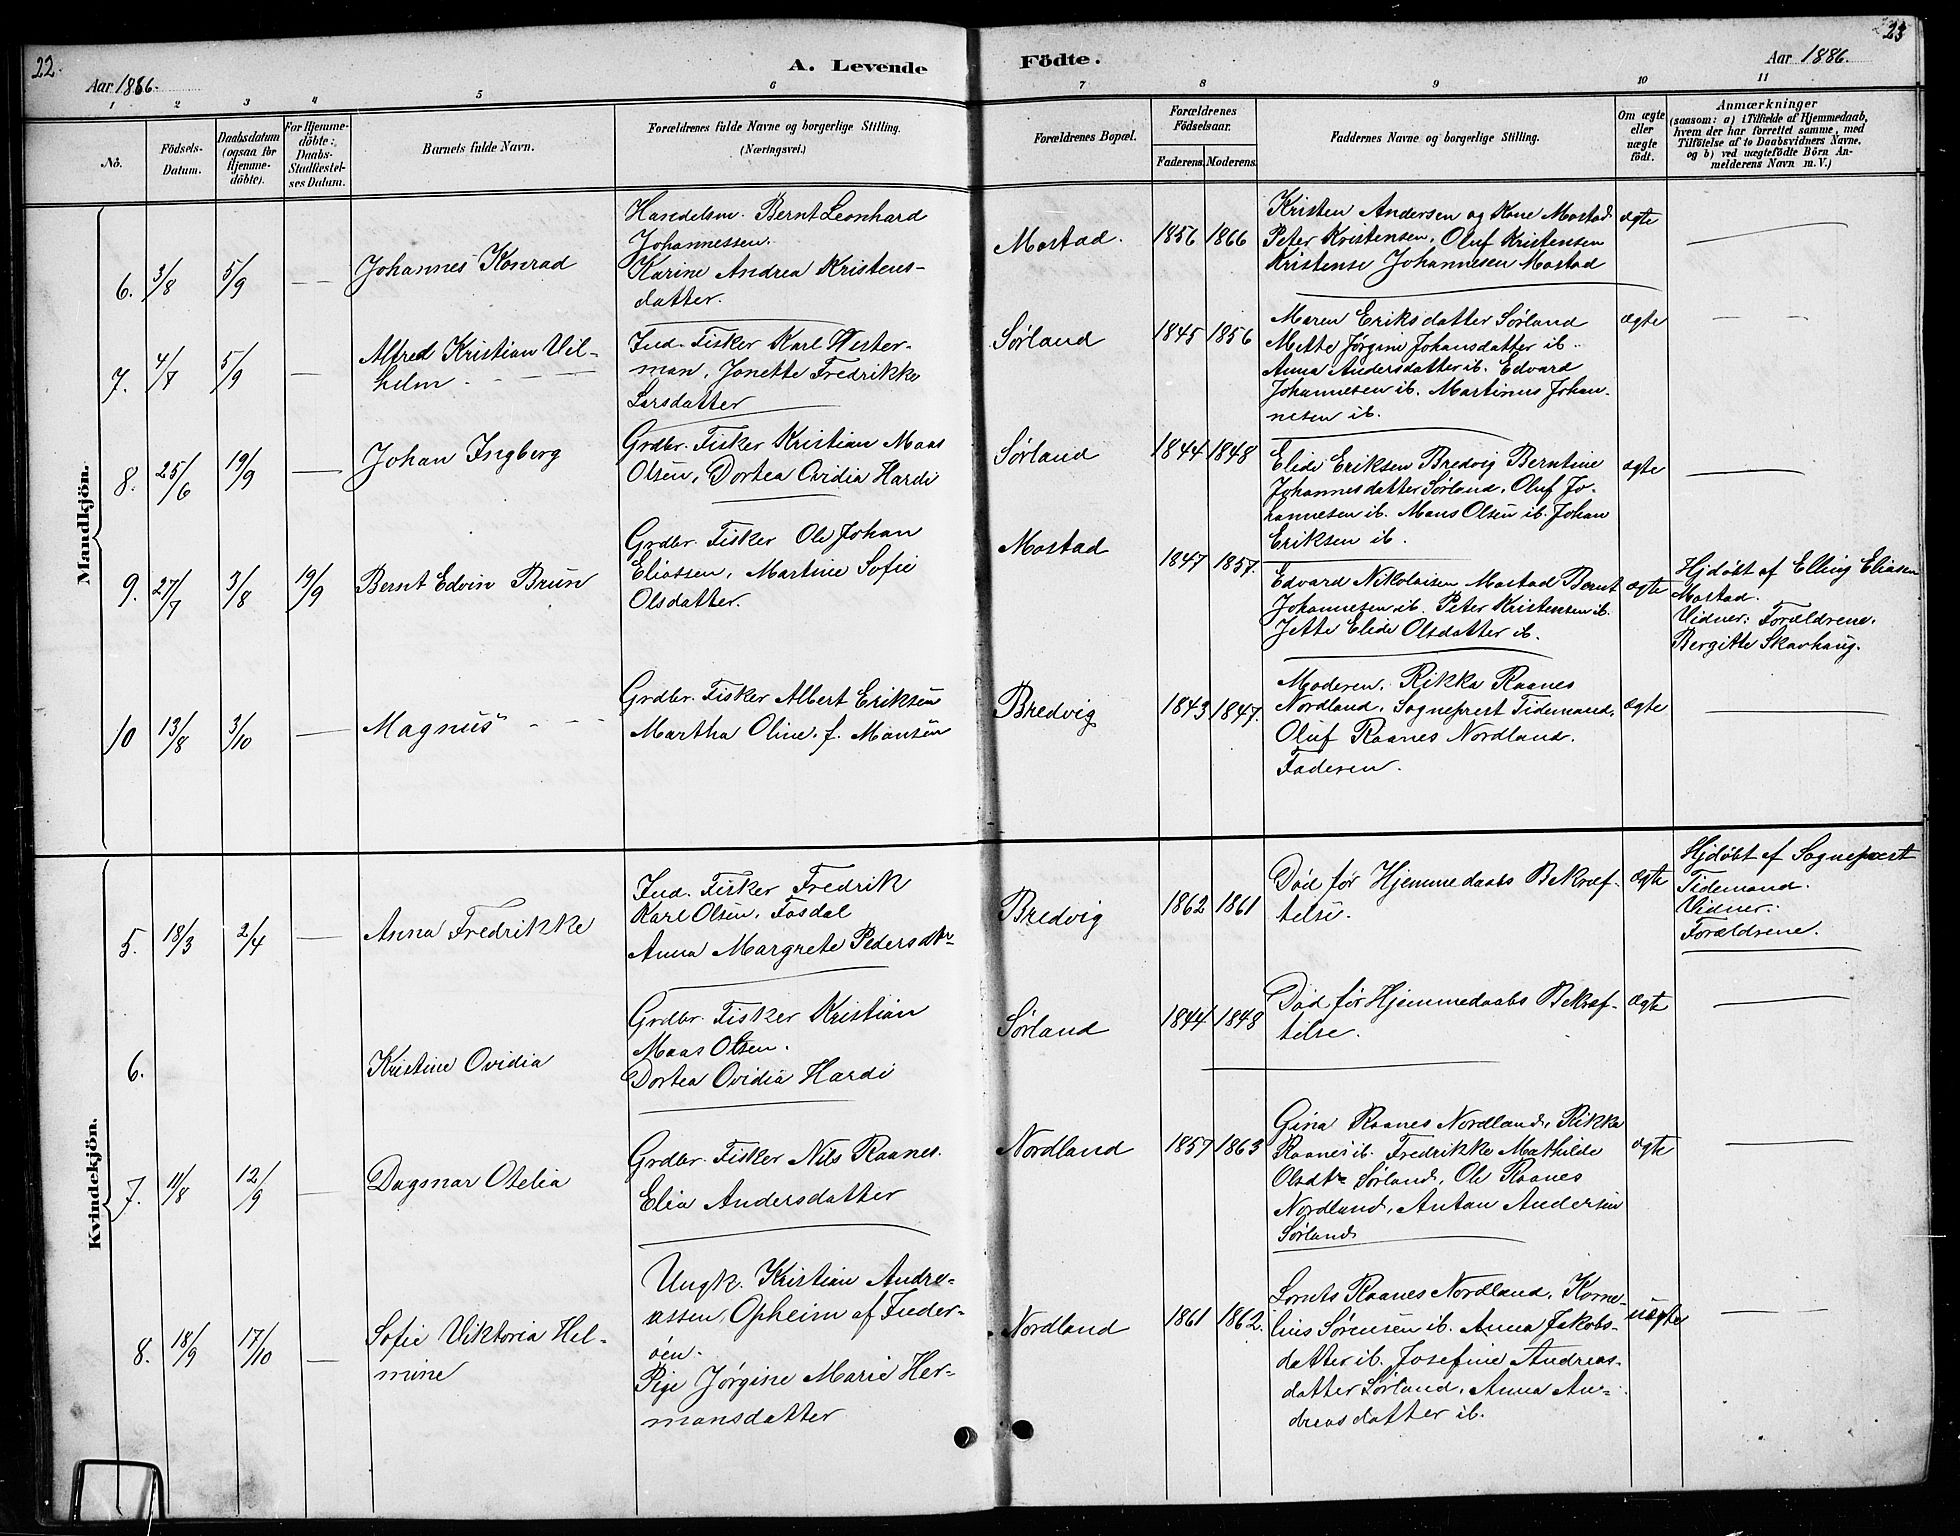 22.
23
A. Levende
Födte.
Aar 1886.
Aar 1886.
1 2 3 4 5 6 7 8 9 10 11
No.
Födsels-
Datum.
Daabsdatum
(ogsaa for
Hjemme-
döbte).
For Hjemme-
döbte:
Daabs-
Stadfæstel-
ses Datum.
Barnets fulde Navn.
Forældrenes fulde Navne og borgerlige Stilling.
(Næringsvei.)
Forældrenes Bopæl.
Forældrenes
Födselsaar.
Faderens. Moderens.
Faddernes Navne og borgerlige Stilling.
Om ægte
eller
uægte
født.
Anmærkninger
(saasom: a) i Tilfælde af Hjemmedaab,
hvem der har forrettet samme, med
Tilføielse af to Daabsvidners Navne,
og b) ved uægtefödte Börn An-
melderens Navn m. V.)
Mandkjön.
6. 3/8 5/9 —
Johannes Konrad
Handelsm. Bernt Leonhard
Johannessen.
Karine Andrea Kristens-
datter.
Mostad. 1856 1866
Kristen Andersen og Kone Mostad
Peter Kristensen, Oluf Kristensen
Kristense Johannesen Mostad
ægte —
7. 4/7 5/9 —
Alfred Kristian Vil-
helm.
Ind. Fisker Karl Wester-
man, Jonette Fredrikke
Larsdatter
Sørland 1845 1856
Maren Eriksdatter Sørland
Mette Jørgine Johansdatter ib.
Anna Andersdatter ib. Edvard
Johannesen ib. Martinus Johan-
nesen ib.
ægte — —
8. 25/6 19/9 —
Johan Ingberg
Grdbr. Fisker Kristian Maas
Olsen, Dortea Ovidia Hardi
Sørland 1844 1848
Elide Eriksen Bredvig Berntine
Johannesdatter Sørland, Oluf Jo-
hannesen ib. Mans Olsen ib. Johan
Eriksen ib.
ægte —
9. 27/7 3/8 19/9
Bernt Edvin Brun
Grdbr. Fisker Ole Johan
Eliassen, Martine Sofie
Olsdatter.
Mostad 1847 1857.
Edvard Nikolaisen Mostad Bernt
Johannesen ib. Peter Kristensen ib.
Jette Elide Olsdatter ib.
ægte
Hjdøbt af Elling Eliasen
Mostad.
Vidner: Forældrene.
Bergitte Skavhaug.
10 13/8 3/10 —
Magnus
Grdbr. Fisker Albert Eriksen
Martha Oline f. Mansen
Bredvig 1843 1847.
Moderen. Rikka Raanes
Nordland, Sogneprest Tidemand,
Oluf Raanes Nordland.
Faderen.
ægte —
Kvindekjön.
5. 18/3 2/4 —
Anna Fredrikke
Ind. Fisker Fredrik
Karl Olsen, Fosdal
Anna Margrete Pedersdtr
Bredvig 1862 1861
Død før Hjemmedaabs Bekræf-
telse.
ægte
Hjdøbt af Sogneprest
Tidemand.
Vidner:
Forældrene.
6.
Kristine Ovidia
Grdbr. Fisker Kristian
Maas Olsen.
Dortea Ovidia Hardi
Sørland 1844 1848
Død før Hjemmedaabs Bekræf-
telse.
ægte —
7. 11/8 12/9 —
Dagmar Otelia
Grdbr. Fisker Nils Raanes.
Elia Andersdatter
Nordland 1857 1863
Gina Raanes Nordland, Rikka
Raanes ib. Fredrikke Mathilde
Olsdtr Sørland, Ole Raanes
Nordland, Antan Andersen
Sørland
ægte —
8. 18/9 17/10 —
Sofie Viktoria Hel-
mine
Ungk. Kristian Andre-
assen, Opheim af Inder-
øen.
Pige Jørgine Marie Her-
mansdatter
Nordland 1861 1862.
Lornts Raanes Nordland, Korne-
lius Sørensen ib. Anna Jakobs-
datter ib. Josefine Andreas-
datter Sørland, Anna An-
dreasdatter ib.
uægte — —